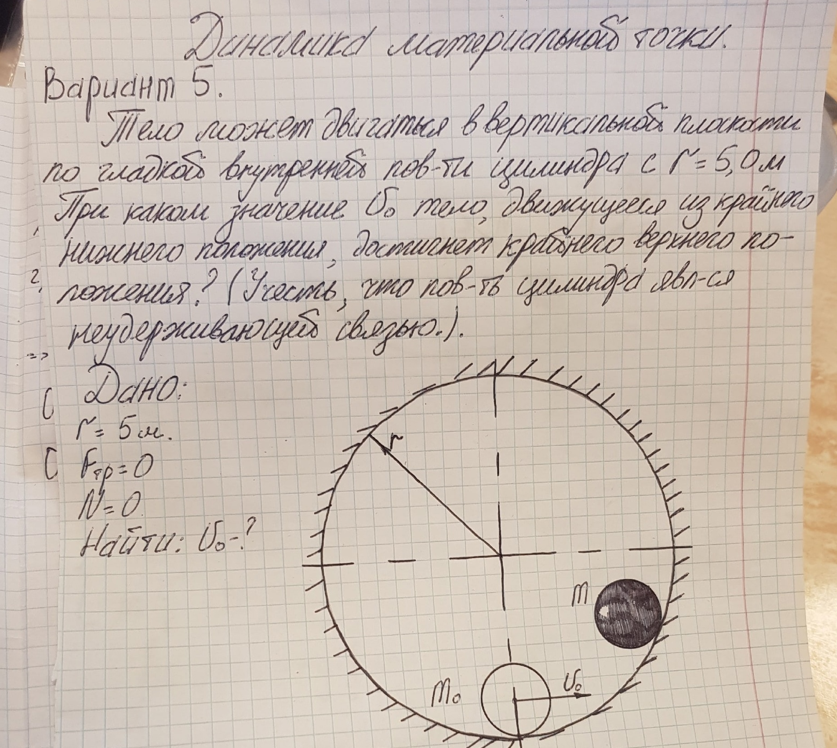 Динамика материальной точки.
Вариант 5.
Тело может двигаться в вертикальной плоскости
по гладкой внутренней пов-ти цилиндра с r = 5,0 м
При каком значение υ₀ тело, движущееся из крайнего
нижнего положения, достигнет крайнего верхнего по-
ложения? (Учесть, что пов-ть цилиндра явл-ся
неудерживающей связью.).
Дано:
r = 5 м.
Fтр = 0
N = 0
Найти: υ₀ - ?
r
m
M₀
υ₀